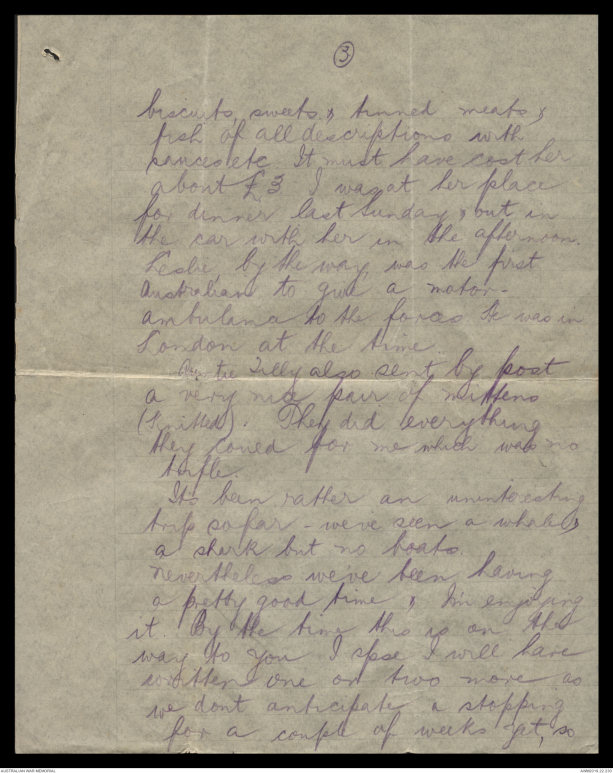 3
biscuits, sweets, & tinned meats, &
fish of all descriptions with
sauces etc. It must have cost her
about £3. I was at her place
for dinner last Sunday, & out in
the car with her in the afternoon.
Leslie, by the way, was the first
Australian to give a motor-
ambulance to the forces He was in
London at the time.
Auntie Tilly also sent by post
a very nice pair of mittens
(Knitted). They did everything
they could for me which was no
trifle.
Its been rather an uninteresting
trip so far - we've seen a whale &
a shark but no boats.
Nevertheless we've been having
a pretty good time & I'm enjoying
it. By the time this is on the
way to you I spse I will have
written one or two more as
we dont anticipate a stopping
for a couple of weeks yet, so
AUSTRALIAN WAR MEMORIAL